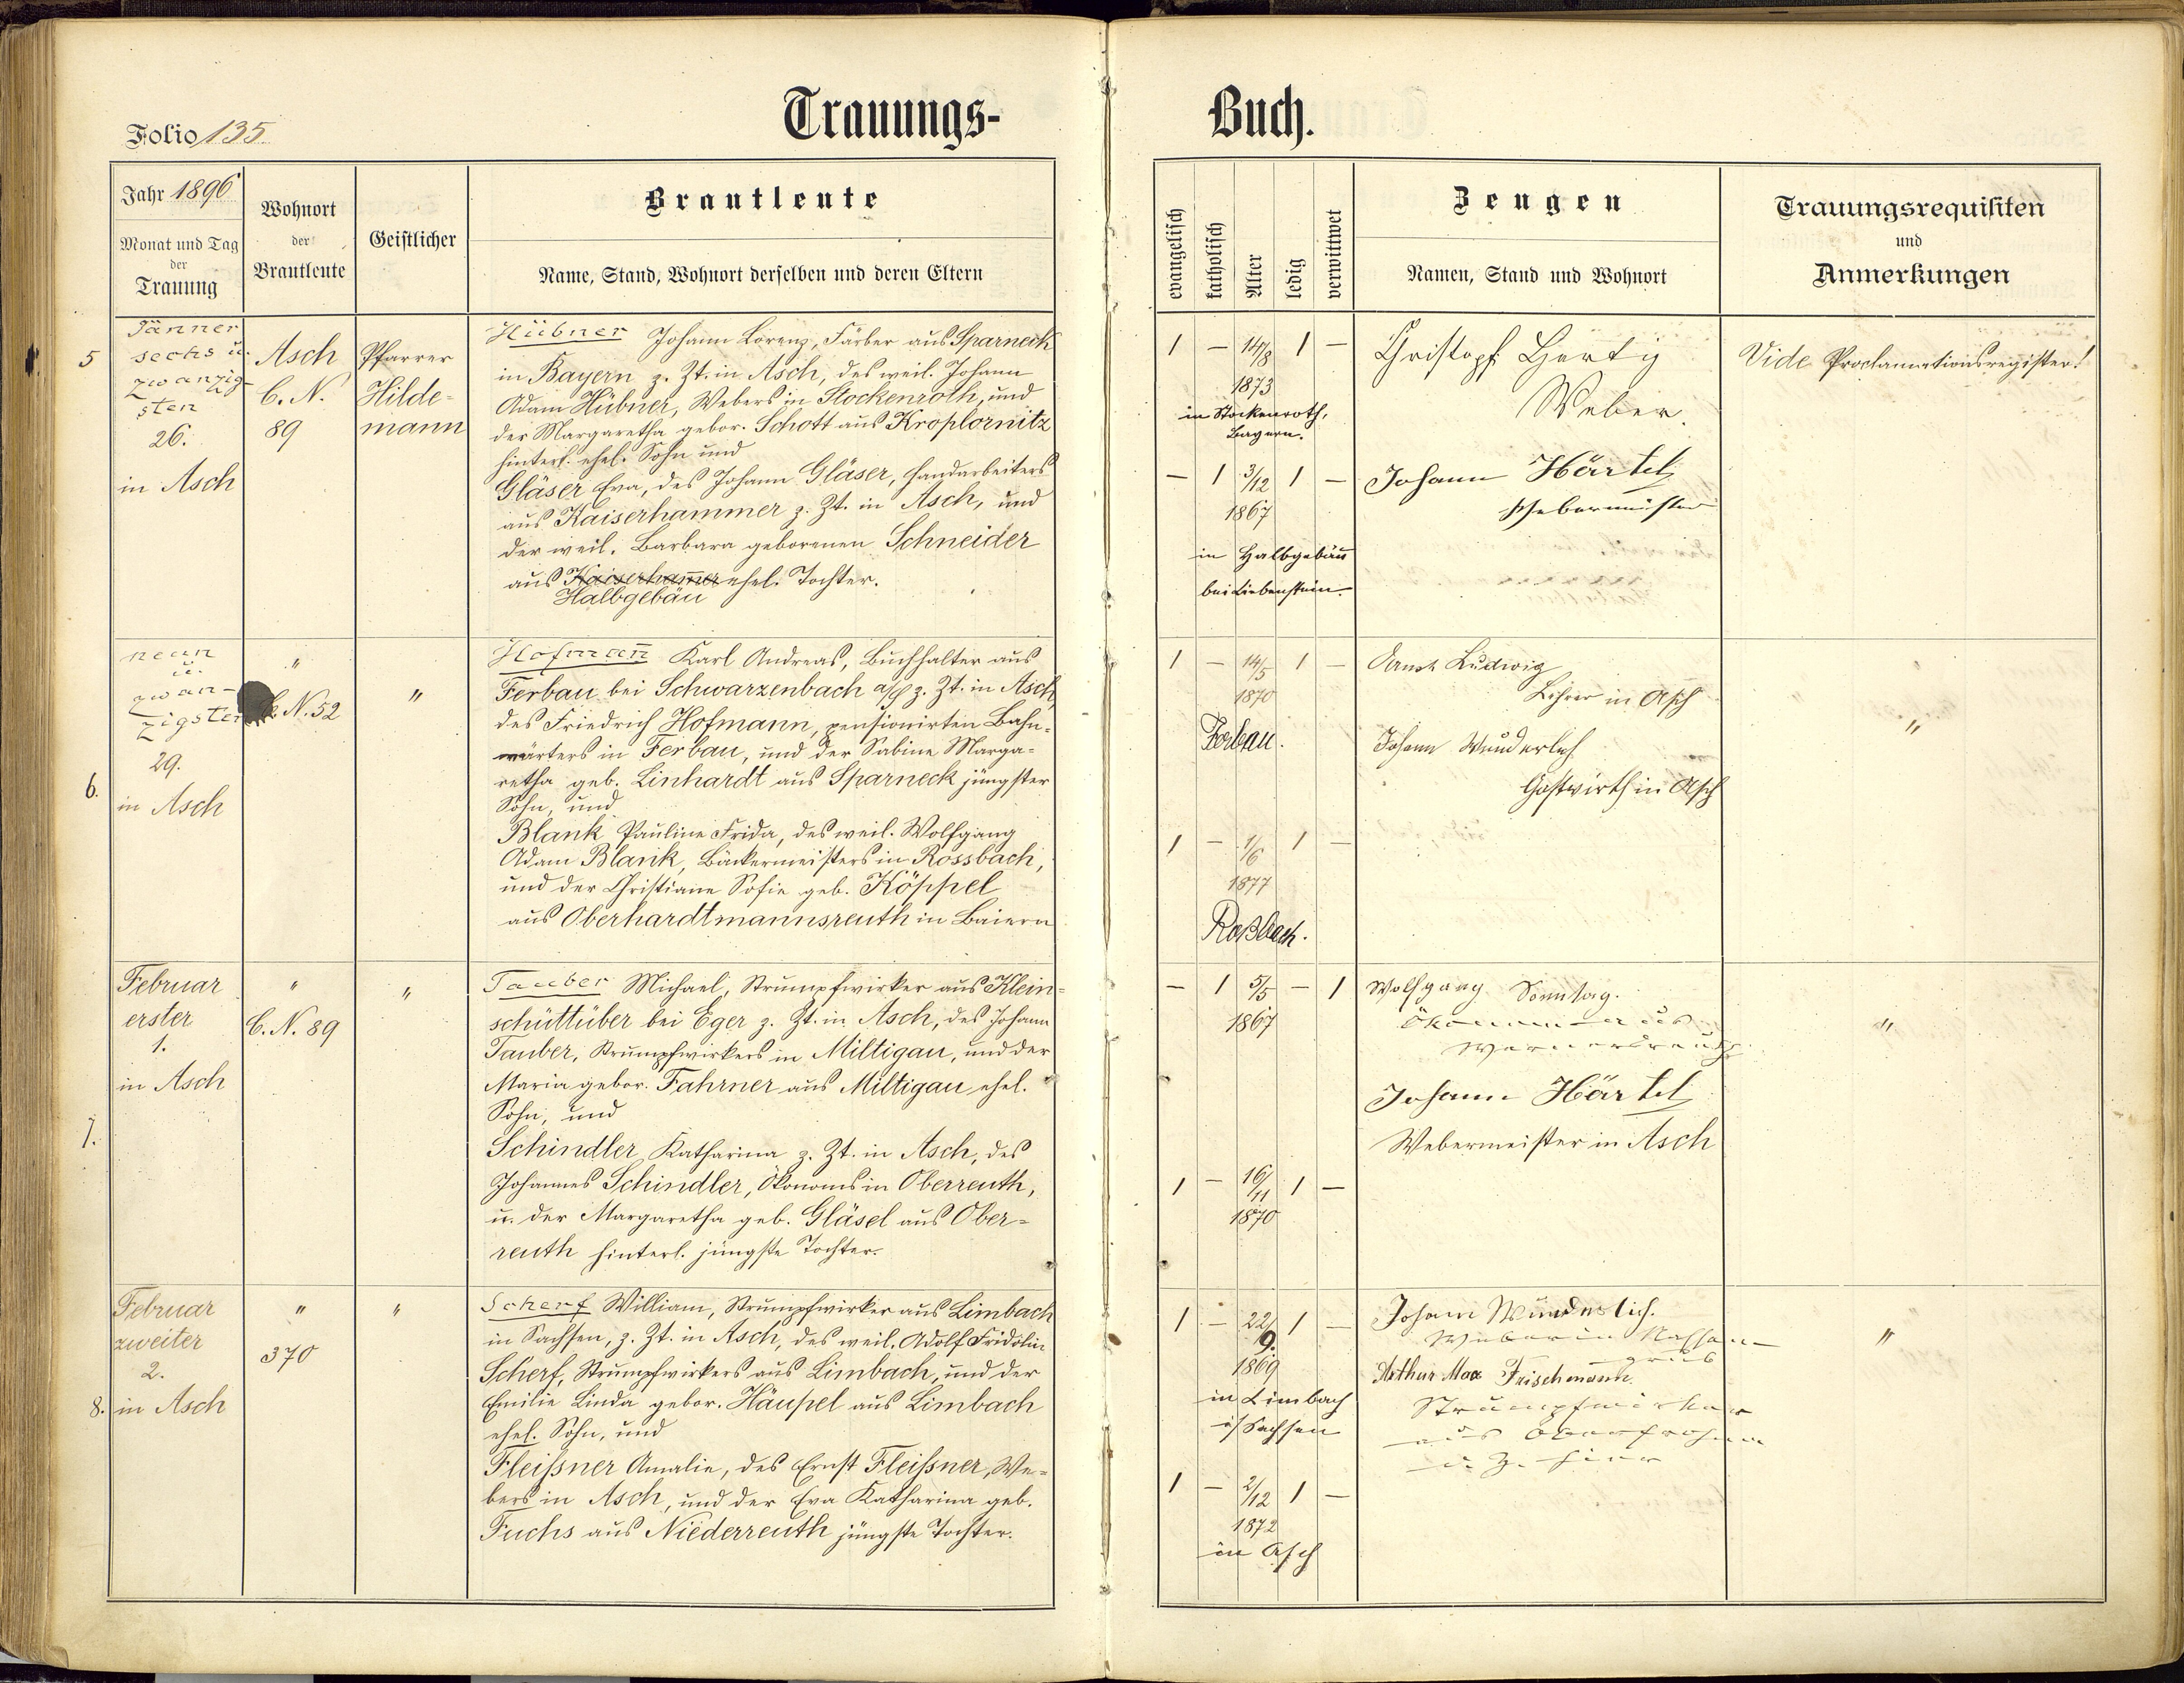 Folio 135
Trauungs-
Jahr 1896
Monat und Tag
der
Trauung
Wohnort
der
Brautleute
Geistlicher
Brautleute
Name, Stand, Wohnort derselben und deren Eltern
5
Jänner
sechs u.
zwanzig-
sten
26.
in Asch
Asch
C. N.
89
Pfarrer
Hilde-
mann
Hübner Johann Lorenz, Färber aus Sparneck
in Bayern z. Zt. in Asch, des weil. Johann
Adam Hübner, Webers in Stockenroth, und
der Margaretha gebor. Schott aus Kroplornitz
hinterl. ehel. Sohn und
Gläser Eva, des Johann Gläser, Handarbeiters
aus Kaiserhammer z. Zt. in Asch, und
der weil. Barbara geborenen Schneider
aus Kaiserham̅er ehel. Tochter.
Halbgebäu
6.
neun
u.
zwan-
zigsten
29.
in Asch
"
C. N. 52
"
Hofman̅ Karl Andreas, Buchhalter aus
Ferbau bei Schwarzenbach a/S z. Zt. in Asch,
des Friedrich Hofmann, pensionirten Bahn-
wärters in Ferbau, und der Sabine Marga-
retha geb. Linhardt aus Sparneck jüngster
Sohn, und
Blank Pauline Frida, des weil. Wolfgang
Adam Blank, Bäckermeisters in Rossbach,
und der Christiane Sofie geb. Köppel
aus Oberhardtmannsreuth in Baiern
7.
Februar
erster
1.
in Asch
"
C. N. 89
"
Tauber Michael, Strumpfwirker aus Klein-
schüttüber bei Eger z. Zt. in Asch, des Johann
Tauber, Strumpfwirkers in Miltigau, und der
Maria gebor. Fahrner aus Miltigau ehel.
Sohn, und
Schindler Katharina z. Zt. in Asch, des
Johannes Schindler, Ökonoms in Oberreuth,
u. der Margaretha geb. Gläsel aus Ober-
reuth hinterl. jüngste Tochter.
8.
Februar
zweiter
2.
in Asch
"
370
"
Scherf William, Strumpfwirker aus Limbach
in Sachsen, z. Zt. in Asch, des weil. Adolf Fridolin
Scherf, Strumpfwirkers aus Limbach, und der
Emilie Linda gebor. Häupel aus Limbach
ehel. Sohn, und
Fleißner Amalie, des Ernst Fleißner, We-
bers in Asch, und der Eva Katharina geb.
Fuchs aus Niederreuth jüngste Tochter.
Buch.
evangelisch
katholisch
Alter
ledig
verwittwet
Zeugen
Namen, Stand und Wohnort
Trauungsrequisiten
und
Anmerkungen
1 – 14/8 1 –
1873
in Stockenroth,
Bayern.
Christoph Hertig
Weber
Vide Proclamationsregister!
– 1 3/12 1 –
1867
in Halbgebäu
bei Liebenstein.
Johann Härtel
Webermeister
1 – 14/5 1 –
1870
Forbau.
Ernst Ludwig
Lehrer in Asch
Johann Wunderlich
Gastwirth in Asch
"
1 – 1/6 1 –
1877
Roßbach.
– 1 5/5 – 1
1867
Wolfgang Sonntag.
Ökonom aus
Wernersreuth
Johann Härtel
Webermeister in Asch
"
1 – 16/11 1 –
1870
1 – 22/9. 1 –
1869
in Limbach
i/ Sachsen
Johann Wunderlich.
Weber in Nassen-
grub
Arthur Max Frischmann.
Strumpfwirker
aus Oberfrohna
d. Z. hier
"
1 – 2/12 1 –
1872
in Asch